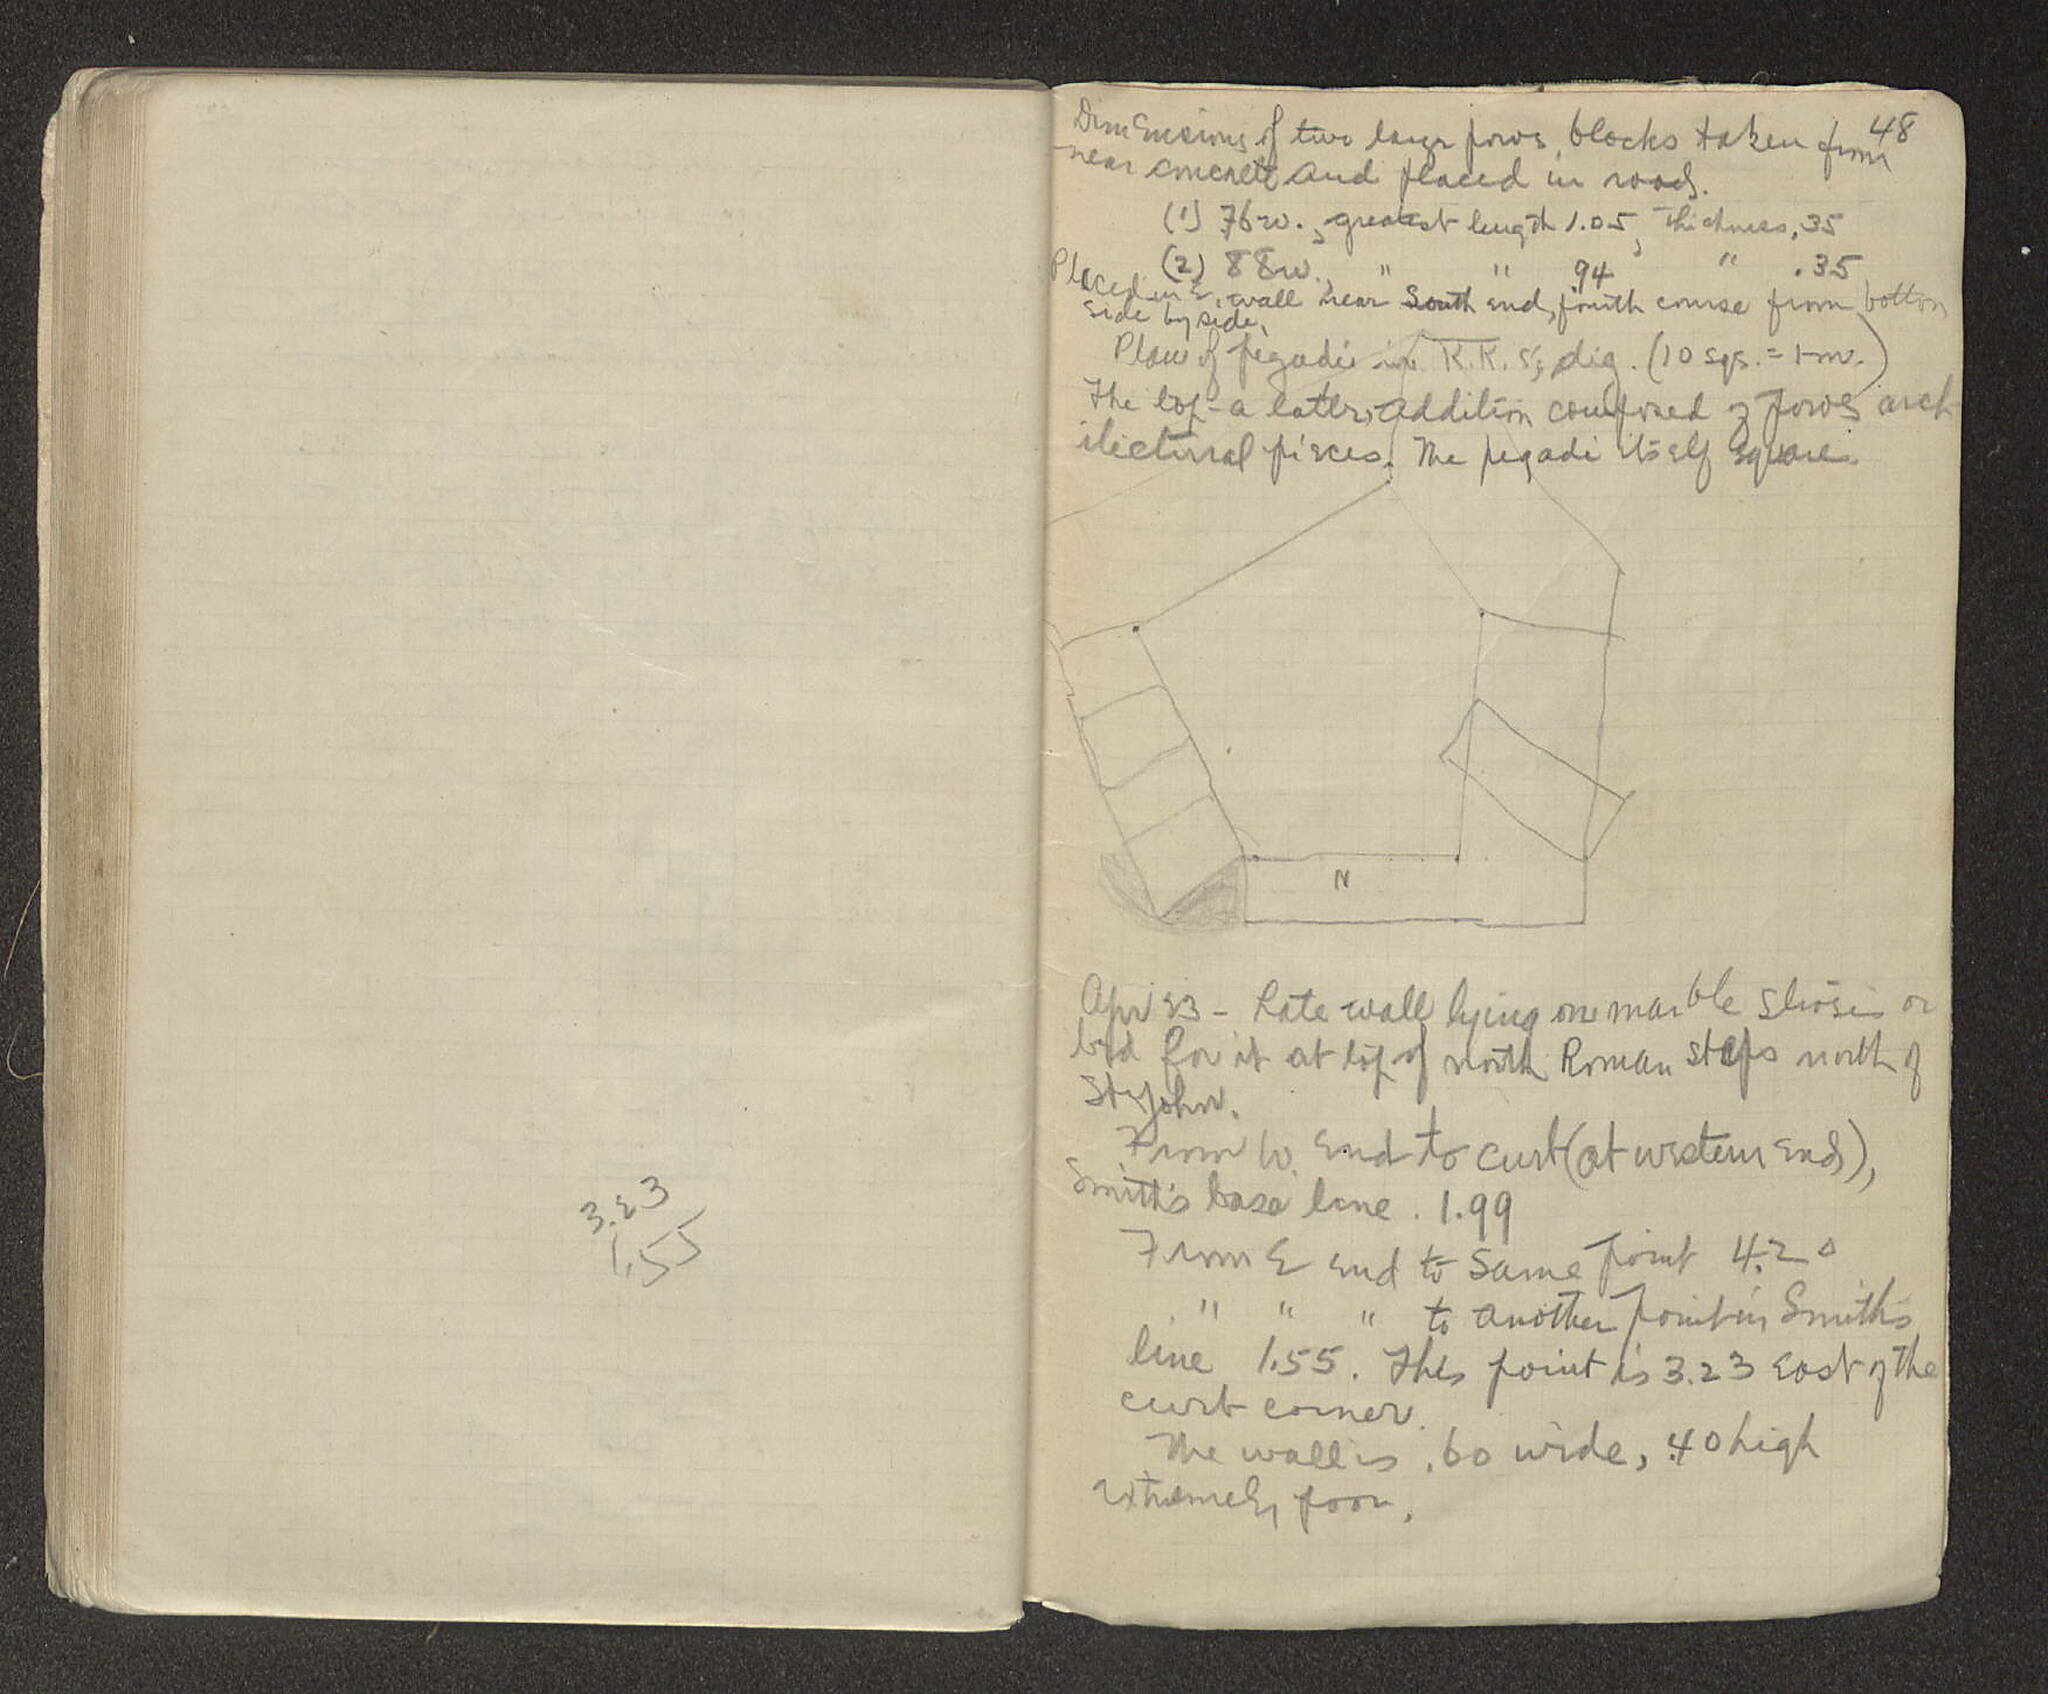 3.23
1.55
48
Dimensions of two large poros blocks taken from
near concrete and placed in road.
(1) 76 w., greatest length 1.05, thickness, 35
(2) 88 w., " " .94 " .35
Placed in E. wall near South end, fourth course from bottom
side by side.
Plan of pegadi in R.R.S's dig. (10 sqs. = 1 m.)
The top - a later addition composed of poros arch
itectural pieces. The pegadi itself square.
N
Apr 23 - Late wall lying on marble or
bed for it at top of north Roman steps north of
St John.
From W. End to curb (at western end),
Smith's base line. 1.99
From E end to same point 4.20
" " " to another point in Smith's
line 1.55. This point is 3.23 East of the
curb corner.
The wall is .60 wide, .40 high
extremely poor.